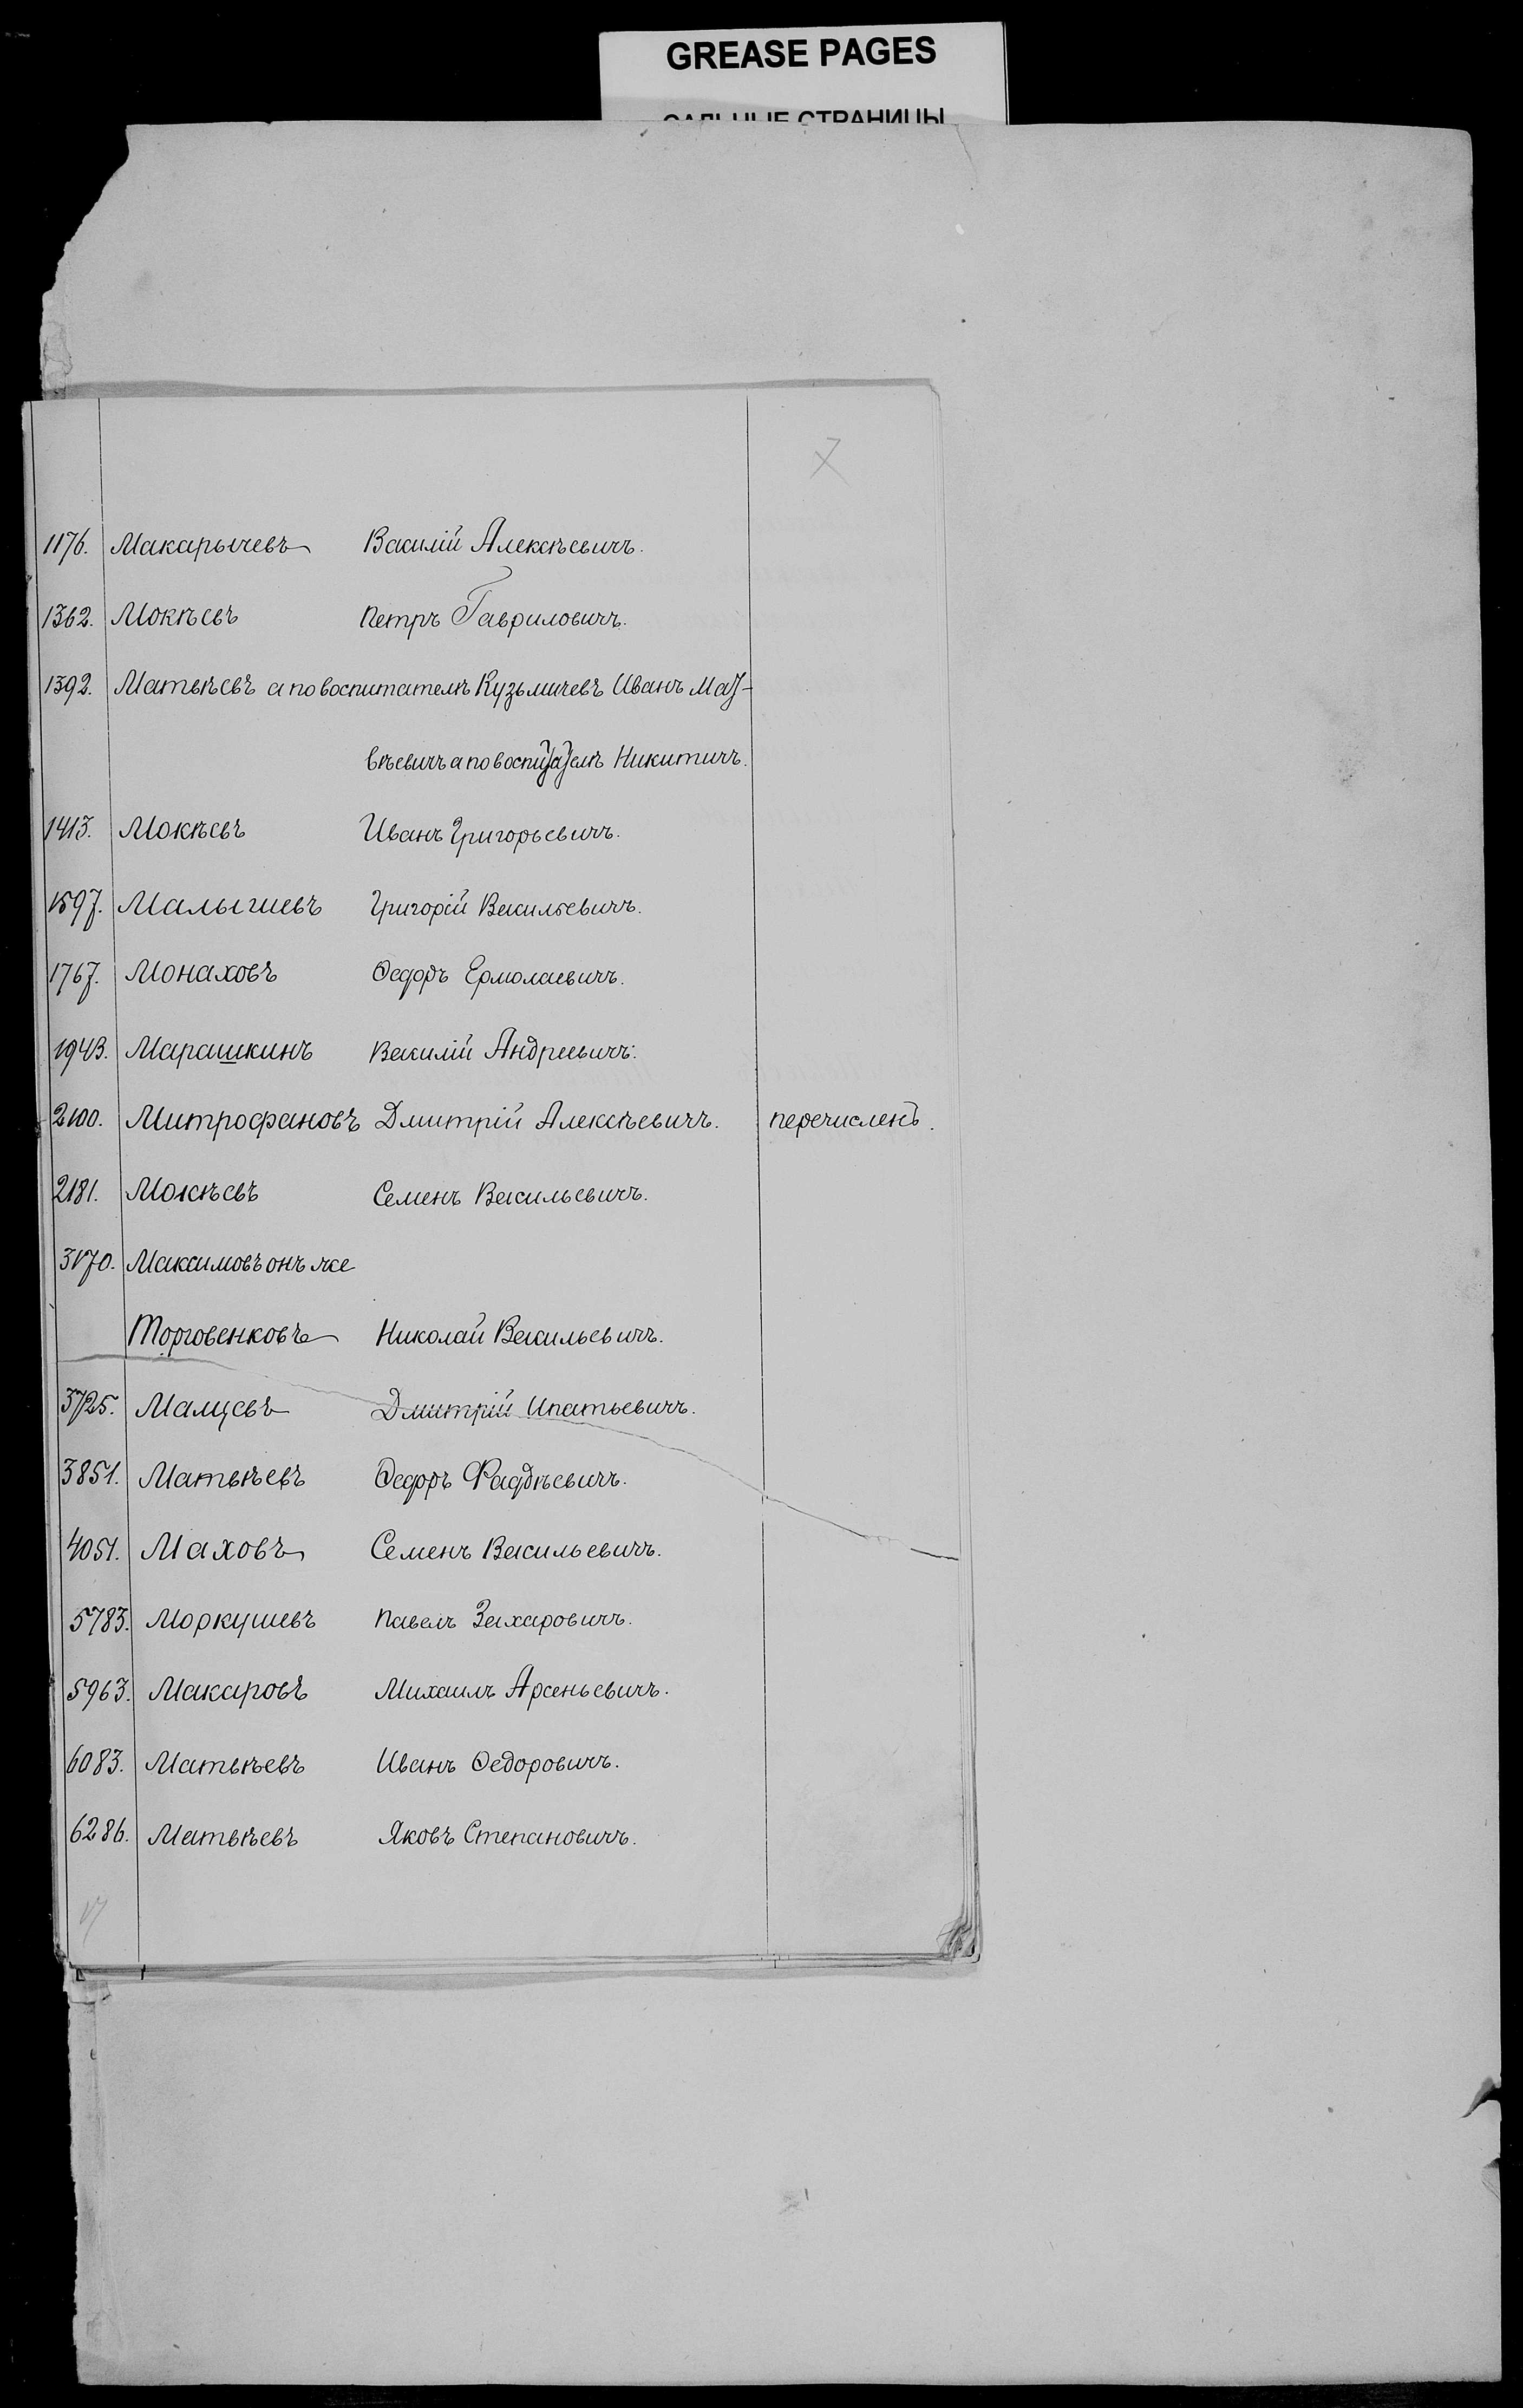 GREASE PAGES
САЛЬНЫЕ СТРАНИЦЫ
1176. Макарычевъ Василій Алексѣевичъ.
1362. Мокѣевъ Петръ Гавриловичъ.
1392. Матвѣевъ а по воспитателѣ Кузьмичевъ Иванъ Мат-
вѣевичъ а по воспитателѣ Никитичъ.
1413. Мокѣевъ Иванъ Григорьевичъ.
1597. Малышевъ Григорій Васильевичъ.
1767. Монаховъ Ѳедоръ Ермолаевичъ.
1943. Марашкинъ Василій Андреевичъ.
2100. Митрофановъ Дмитрій Алексѣевичъ. перечисленъ.
2181. Мокѣевъ Семенъ Васильевичъ.
3170. Максимовъ онъ же
Торговенковъ Николай Васильевичъ.
3725. Малцевъ Дмитрій Ипатьевичъ.
3851. Матвѣевъ Ѳедоръ Фадѣевичъ.
4051. Маховъ Семенъ Васильевичъ.
5783. Моркушевъ Павелъ Захаровичъ.
5963. Макаровъ Михаилъ Арсеньевичъ.
6083. Матвѣевъ Иванъ Ѳедоровичъ.
6286. Матвѣевъ Яковъ Степановичъ.